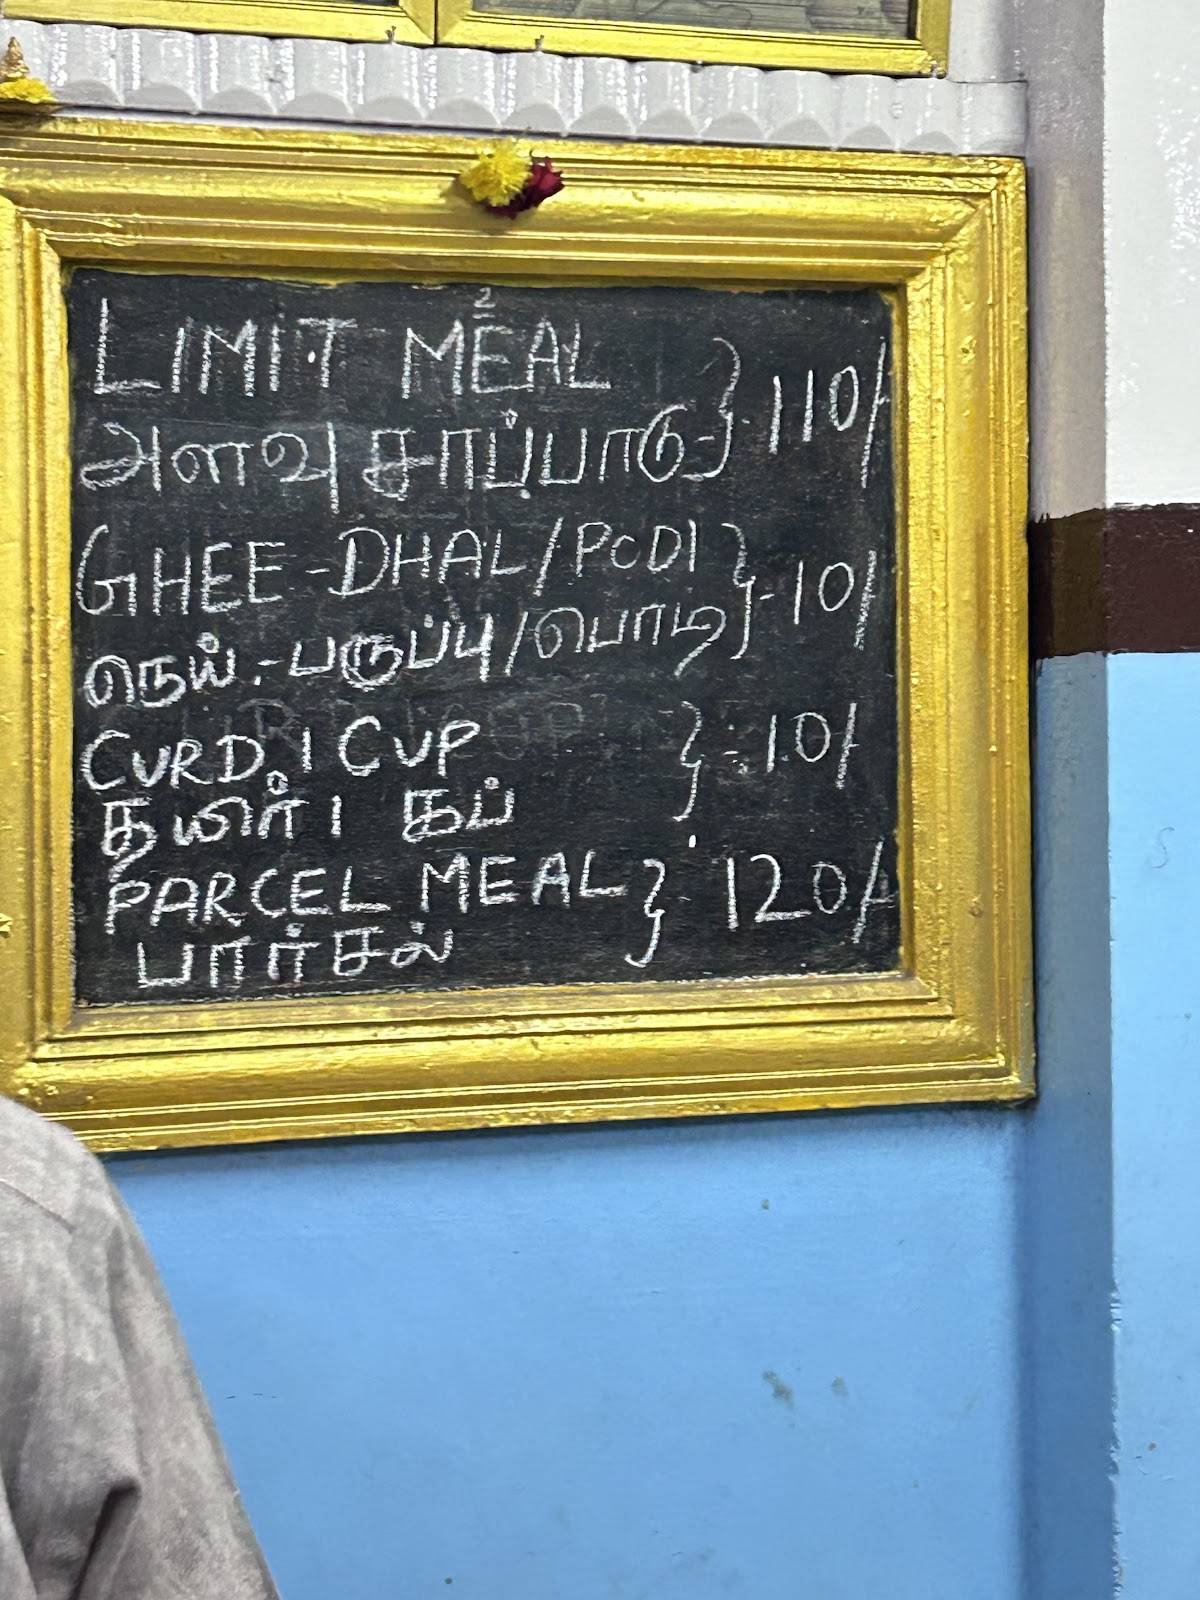 LIMIT MEAL
அளவு சாப்பாடு } 110/-
GHEE - DHAL / PODI
நெய் - பருப்பு / பொடி } - 10/-
CURD 1 CUP
தயிர் 1 கப் } : 10/-
PARCEL MEAL
பார்சல் } 120/-